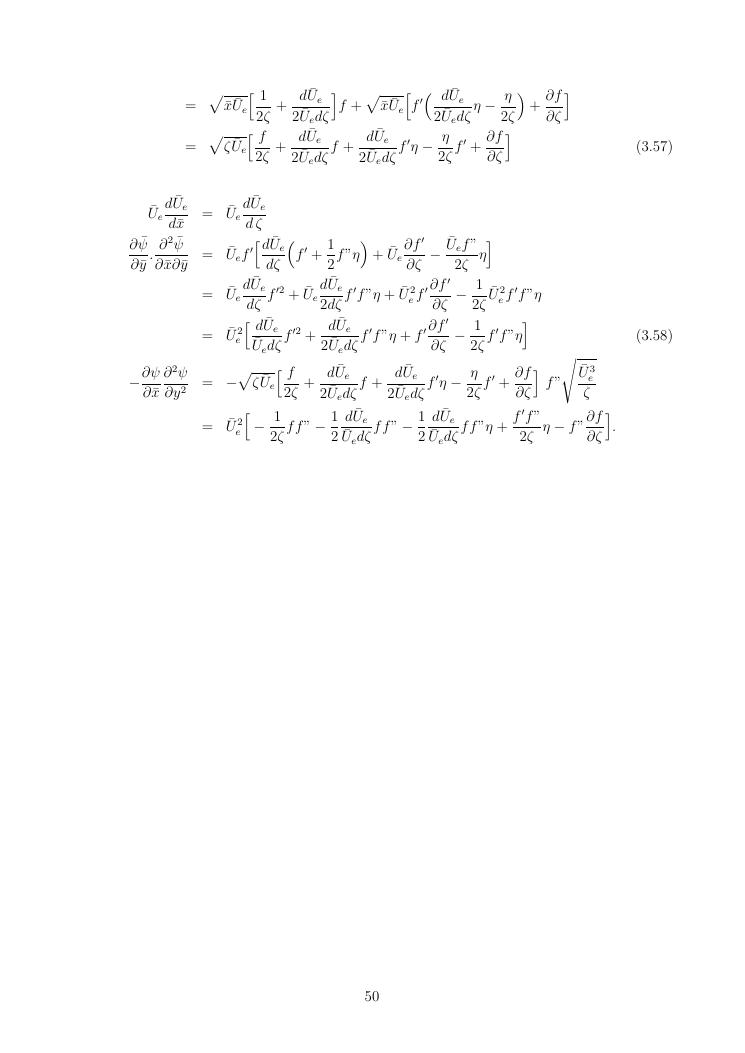 $= \sqrt{\bar{x}\bar{U}_e}\Big[\frac{1}{2\zeta} + \frac{d\bar{U}_e}{2\bar{U}_e d\zeta}\Big]f + \sqrt{\bar{x}\bar{U}_e}\Big[f'\Big(\frac{d\bar{U}_e}{2\bar{U}_e d\zeta}\eta - \frac{\eta}{2\zeta}\Big) + \frac{\partial f}{\partial \zeta}\Big]$
$= \sqrt{\zeta\bar{U}_e}\Big[\frac{f}{2\zeta} + \frac{d\bar{U}_e}{2\bar{U}_e d\zeta}f + \frac{d\bar{U}_e}{2\bar{U}_e d\zeta}f'\eta - \frac{\eta}{2\zeta}f' + \frac{\partial f}{\partial \zeta}\Big]$ (3.57)
$\bar{U}_e\frac{d\bar{U}_e}{d\bar{x}} = \bar{U}_e\frac{d\bar{U}_e}{d\,\zeta}$
$\frac{\partial\bar{\psi}}{\partial\bar{y}}.\frac{\partial^2\bar{\psi}}{\partial\bar{x}\partial\bar{y}} = \bar{U}_e f'\Big[\frac{d\bar{U}_e}{d\zeta}\Big(f' + \frac{1}{2}f"\eta\Big) + \bar{U}_e\frac{\partial f'}{\partial\zeta} - \frac{\bar{U}_e f"}{2\zeta}\eta\Big]$
$= \bar{U}_e\frac{d\bar{U}_e}{d\zeta}f'^2 + \bar{U}_e\frac{d\bar{U}_e}{2d\zeta}f'f"\eta + \bar{U}_e^2 f'\frac{\partial f'}{\partial\zeta} - \frac{1}{2\zeta}\bar{U}_e^2 f'f"\eta$
$= \bar{U}_e^2\Big[\frac{d\bar{U}_e}{\bar{U}_e d\zeta}f'^2 + \frac{d\bar{U}_e}{2\bar{U}_e d\zeta}f'f"\eta + f'\frac{\partial f'}{\partial\zeta} - \frac{1}{2\zeta}f'f"\eta\Big]$ (3.58)
$-\frac{\partial\psi}{\partial\bar{x}}\frac{\partial^2\psi}{\partial y^2} = -\sqrt{\zeta\bar{U}_e}\Big[\frac{f}{2\zeta} + \frac{d\bar{U}_e}{2\bar{U}_e d\zeta}f + \frac{d\bar{U}_e}{2\bar{U}_e d\zeta}f'\eta - \frac{\eta}{2\zeta}f' + \frac{\partial f}{\partial\zeta}\Big]\ f"\sqrt{\frac{\bar{U}_e^3}{\zeta}}$
$= \bar{U}_e^2\Big[-\frac{1}{2\zeta}ff" - \frac{1}{2}\frac{d\bar{U}_e}{\bar{U}_e d\zeta}ff" - \frac{1}{2}\frac{d\bar{U}_e}{\bar{U}_e d\zeta}ff"\eta + \frac{f'f"}{2\zeta}\eta - f"\frac{\partial f}{\partial\zeta}\Big].$
50